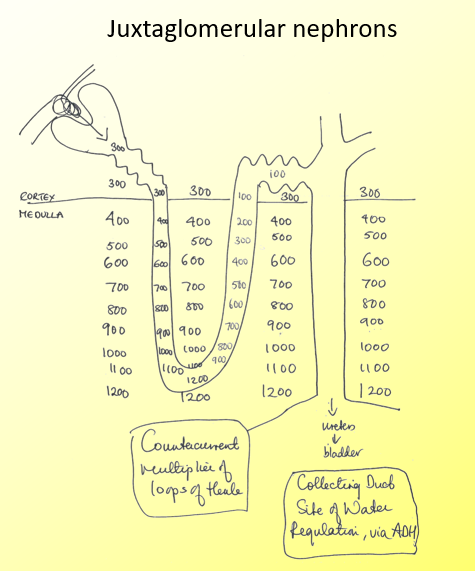 Juxtaglomerular nephrons
300
100
300
300 300 100 300 300
CORTEX
MEDULLA
400 400 400 200 400 400
500 500 500 300 500 500
600 600 600 400 600 600
700 700 700 500 700 700
800 800 800 600 800 800
900 900 900 700 900 900
1000 1000 1000 800 1000 1000
1100 1100 1100 900 1100 1100
1200 1200 1200 1200 1200
ureters
bladder
Countercurrent
multiplier of
loops of Henle
Collecting Duct
Site of Water
Regulation, via ADH